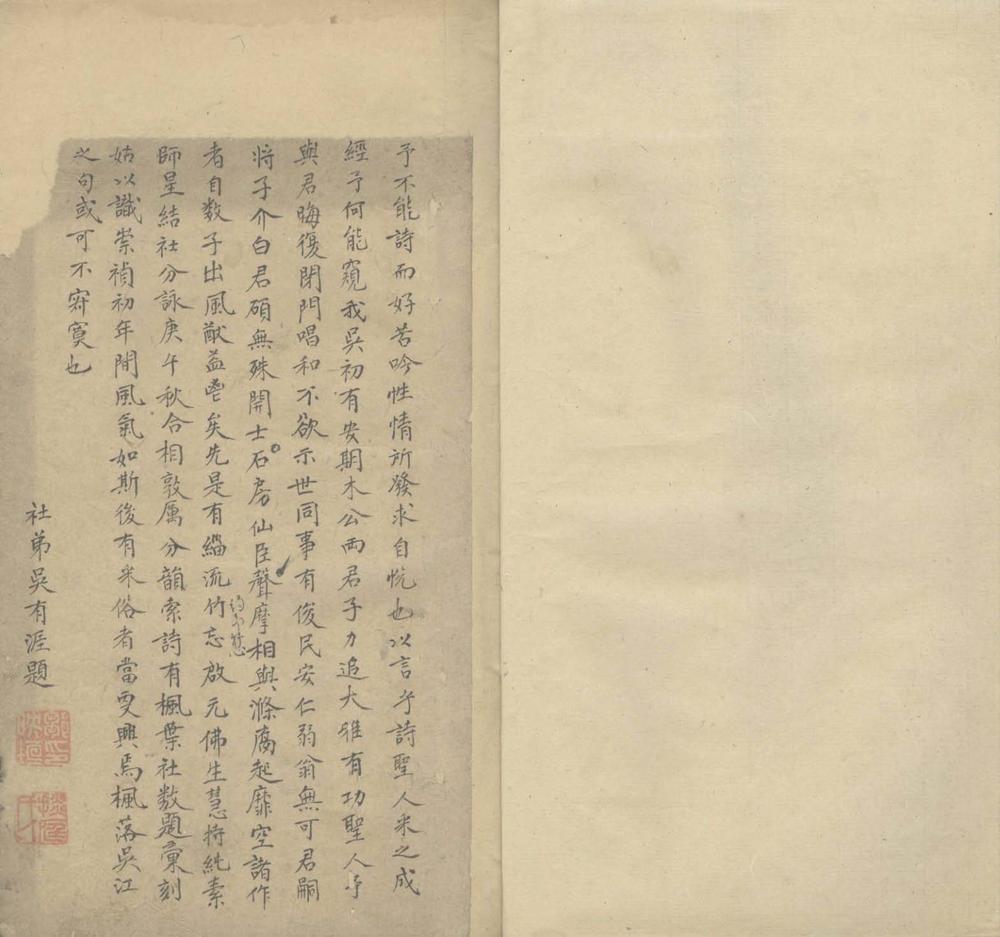 予不能詩而好苦吟性情所發求自悅也以言乎詩聖人采之成
經予何能窺我吳初有安期木公兩君子力追大雅有功聖人予
與君晦復閉門唱和不欲示世同事有俊民安仁弱翁無可君嗣
將子介白君碩無殊開士石房仙臣聲摩相與滌腐起靡空諸作
者自数子出風猷益邕矣先是有緇流竹忘啟元佛生慧持純素
師星結社分詠庚午秋合相敦厲分韻索詩有楓葉社数題彙刻
姑以識崇禎初年間風氣如斯後有采俗者當更興焉楓落吳江
之句或可不寂寞也
社弟吳有涯題